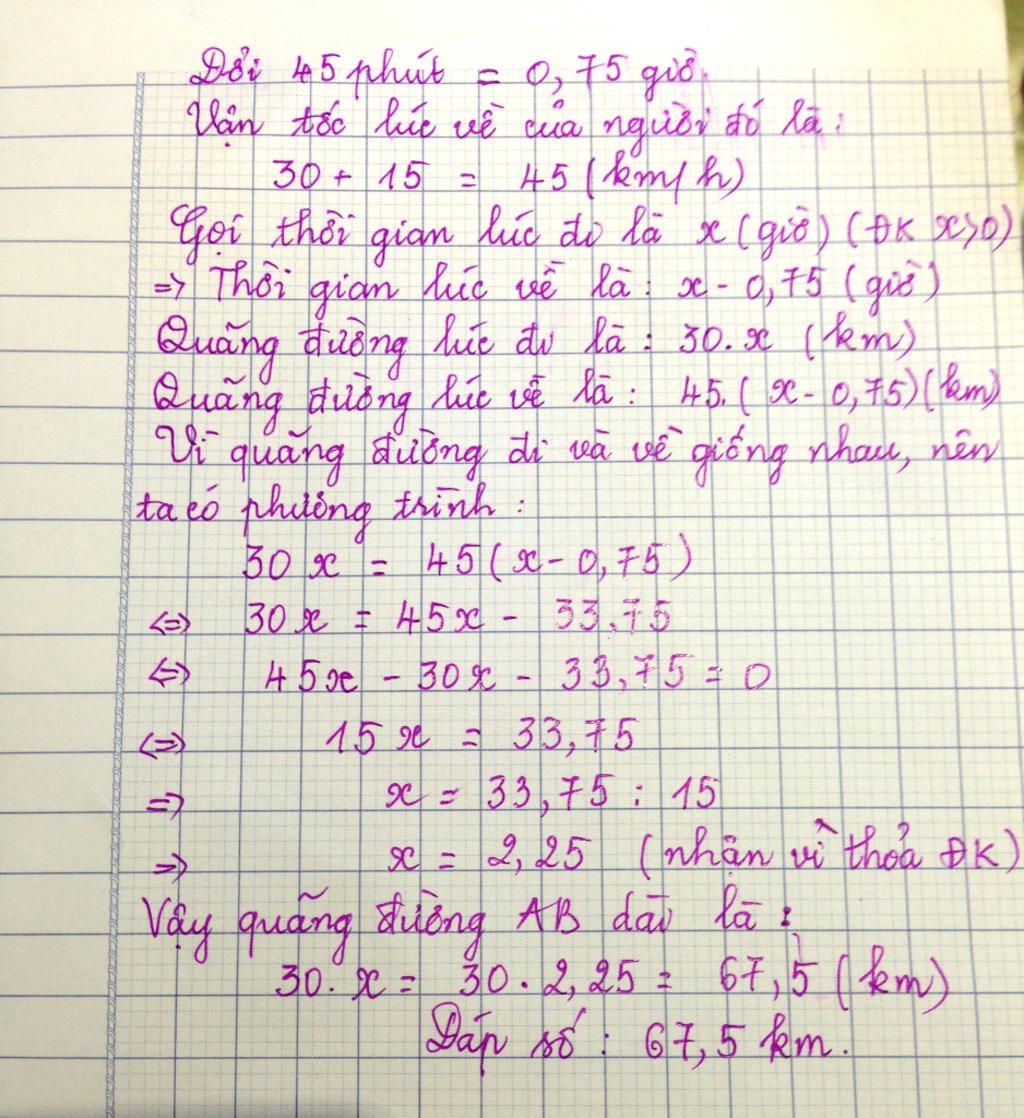 Đổi 45 phút = 0,75 giờ.
Vận tốc lúc về của người đó là:
30 + 15 = 45 (km/h)
Gọi thời gian lúc đi là x (giờ) (ĐK x>0)
=> Thời gian lúc về là: x - 0,75 (giờ)
Quãng đường lúc đi là: 30.x (km)
Quãng đường lúc về là: 45.(x - 0,75)(km)
Vì quãng đường đi và về giống nhau, nên
ta có phương trình:
30x = 45(x - 0,75)
<=> 30x = 45x - 33,75
<=> 45x - 30x - 33,75 = 0
<=> 15x = 33,75
=> x = 33,75 : 15
=> x = 2,25 (nhận vì thỏa ĐK)
Vậy quãng đường AB dài là:
30.x = 30.2,25 = 67,5 (km)
Đáp số: 67,5 km.